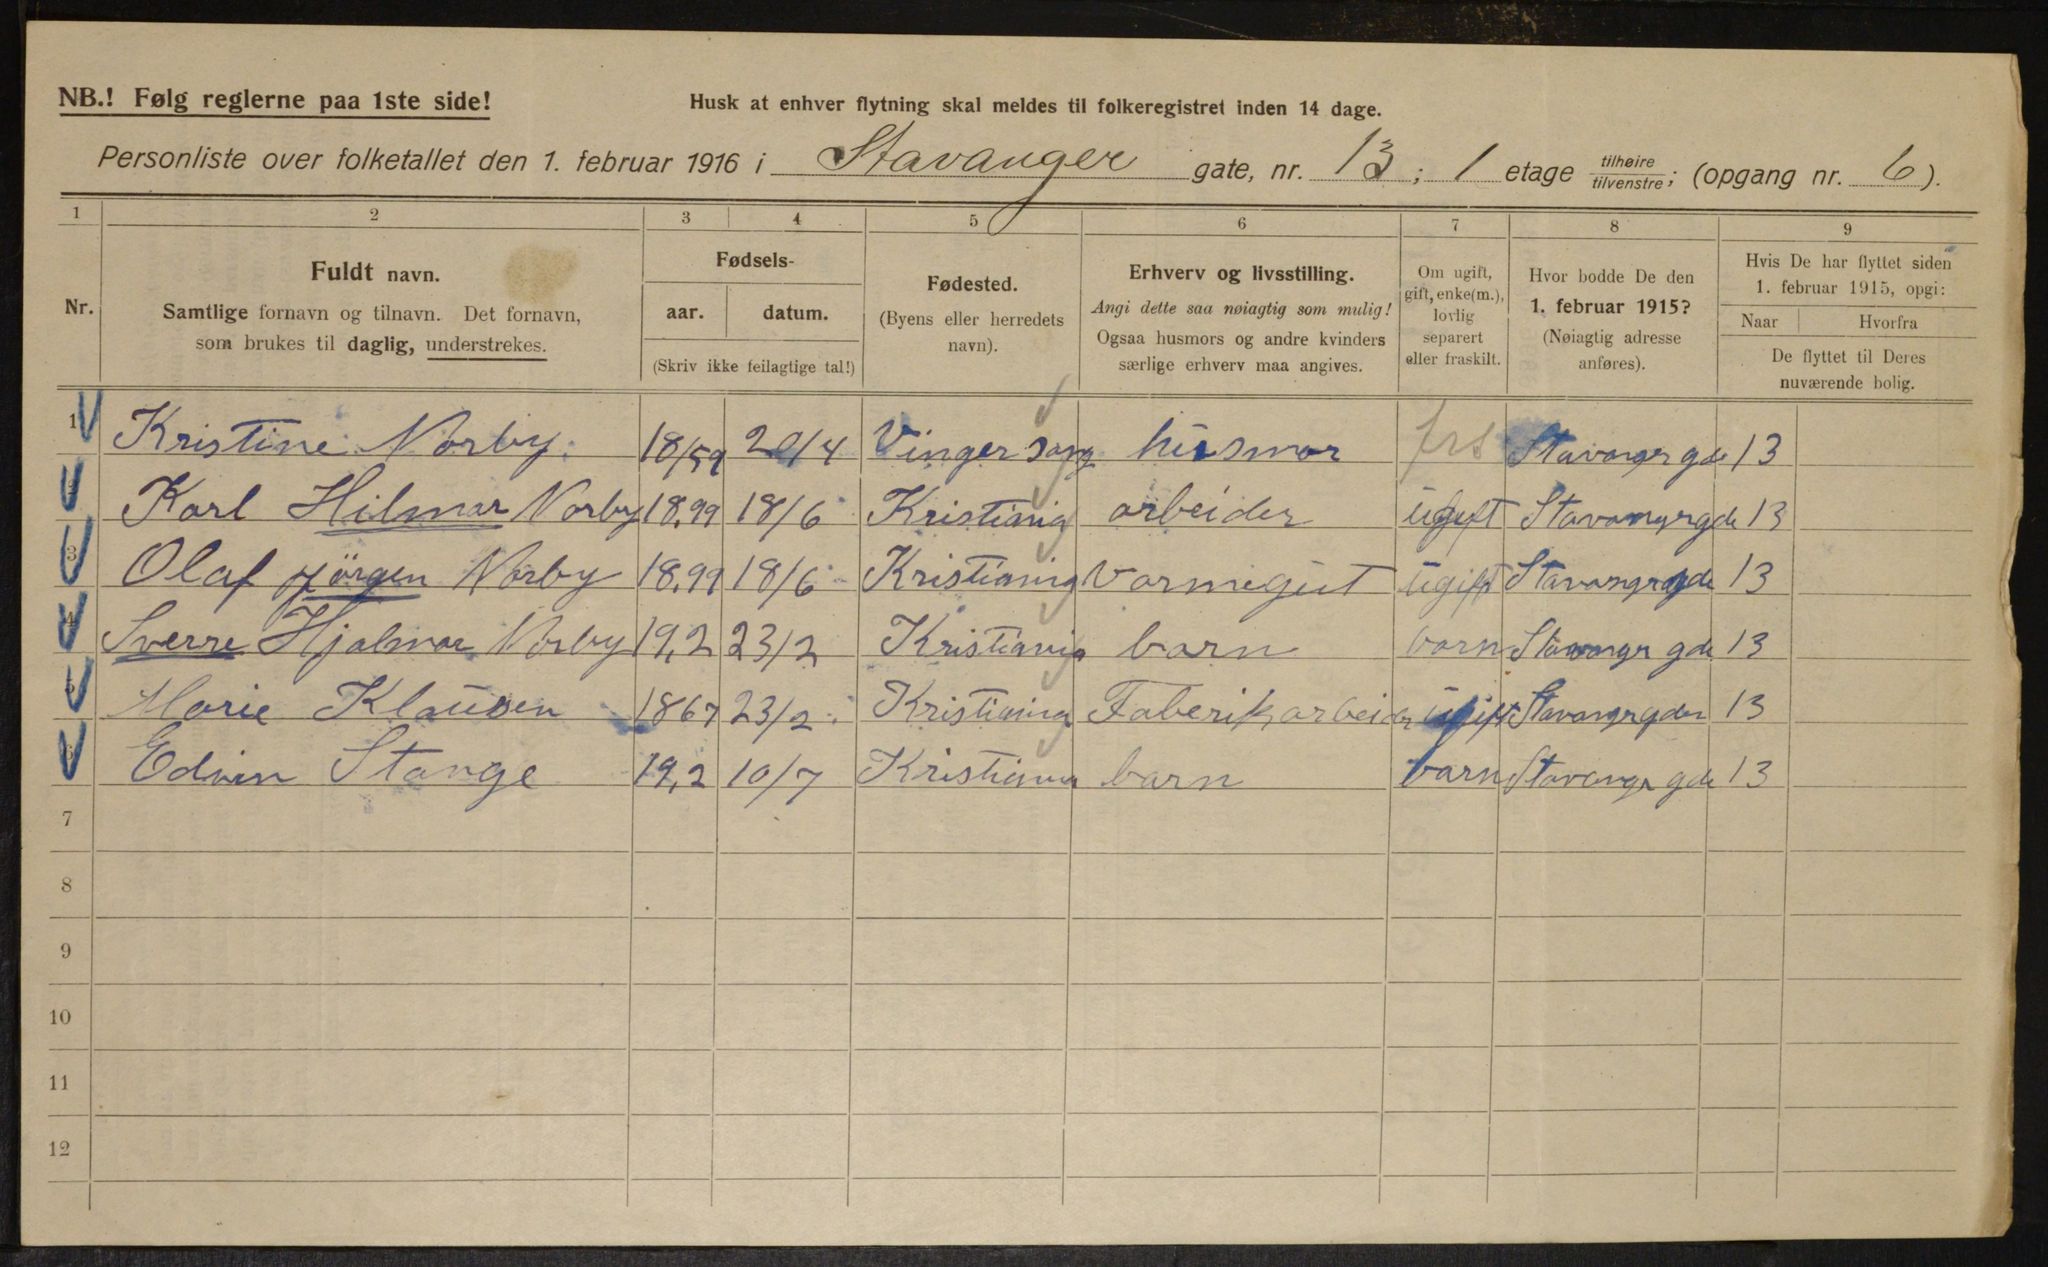 NB.! Følg reglerne paa 1ste side!
Husk at enhver flytning skal meldes til folkeregistret inden 14 dage.
Personliste over folketallet den 1. februar 1916 i Stavanger gate, nr. 13; 1 etage tilhøire/tilvenstre; (opgang nr. 6).
1 2 3 4 5 6 7 8 9
Nr.
Fuldt navn.
Samtlige fornavn og tilnavn. Det fornavn,
som brukes til daglig, understrekes.
Fødsels-
aar. datum.
(Skriv ikke feilagtige tal!)
Fødested.
(Byens eller herredets
navn).
Erhverv og livsstilling.
Angi dette saa nøiagtig som mulig!
Ogsaa husmors og andre kvinders
særlige erhverv maa angives.
Om ugift,
gift, enke(m.),
lovlig
separert
eller fraskilt.
Hvor bodde De den
1. februar 1915?
(Nøiagtig adresse
anføres).
Hvis De har flyttet siden
1. februar 1915, opgi:
Naar Hvorfra
De flyttet til Deres
nuværende bolig.
1 Kristine Norby. 18/59 20/4 Vinger husmor Stavangergde 13
2 Karl Hilmar Norby 18.99 18/6 Kristiania arbeider ugift Stavangergde 13
3 Olaf Jörgen Norby 18.99 18/6 Kristiania ugift Stavangergde 13
4 Sverre Hjalmar Norby 19,2 23/2 Kristiania barn barn Stavanger gde 13
5 Marie Klausen 1867 23/2 Kristiania Faberikarbeider ugift Stavangergden 13
6 Edvin Stange 19,2 10/7 Kristiania barn barn Stavanger gde 13
7
8
9
10
11
12